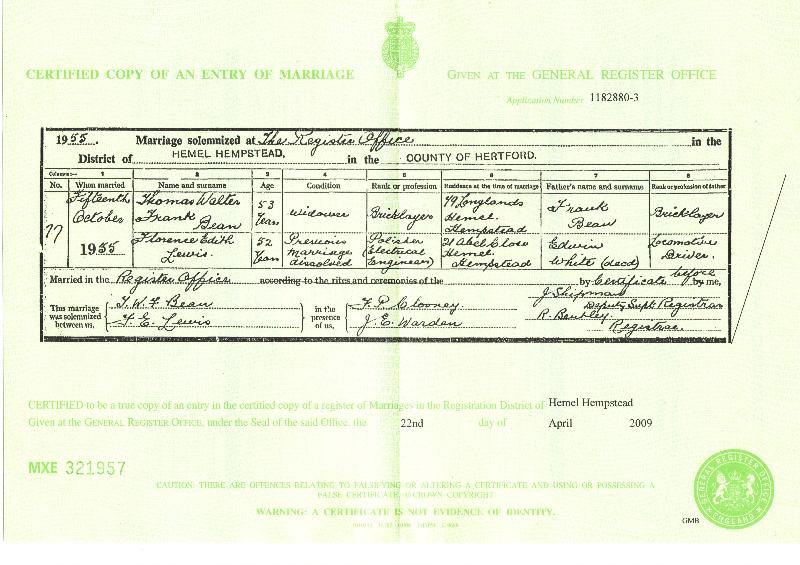 CERTIFIED COPY OF AN ENTRY OF MARRIAGE
GIVEN AT THE GENERAL REGISTER OFFICE
Application Number 1182880-3
1955. Marriage solemnized at The Register Office in the
District of HEMEL HEMPSTEAD, in the COUNTY OF HERTFORD.
Columns:— 1 2 3 4 5 6 7 8
No. When married Name and surname Age Condition Rank or profession Residence at the time of marriage Father's name and surname Rank or profession of father
77 Fifteenth October 1955
Thomas Walter Frank Bean 53 Years Widower Bricklayer 79 Longlands Hemel Hempstead Frank Bean Bricklayer
Florence Edith Lewis. 52 Years Previous marriage dissolved Polisher (Electrical Engineers) 21 Abel Close Hemel Hempstead Edwin White (decd) Locomotive Driver.
Married in the Register Office according to the rites and ceremonies of the by Certificate before by me,
This marriage was solemnized between us,
T. W. F. Bean
F. E. Lewis
in the presence of us,
F. P. Clooney
J. E. Warden
J. Shipman
Deputy Supt. Registrar
R. Bentley.
Registrar.
CERTIFIED to be a true copy of an entry in the certified copy of a register of Marriages in the Registration District of Hemel Hempstead
Given at the GENERAL REGISTER OFFICE, under the Seal of the said Office, the 22nd day of April 2009
MXE 321957
CAUTION: THERE ARE OFFENCES RELATING TO FALSIFYING OR ALTERING A CERTIFICATE AND USING OR POSSESSING A
FALSE CERTIFICATE. ©CROWN COPYRIGHT
WARNING: A CERTIFICATE IS NOT EVIDENCE OF IDENTITY.
GENERAL REGISTER OFFICE
ENGLAND
GMB